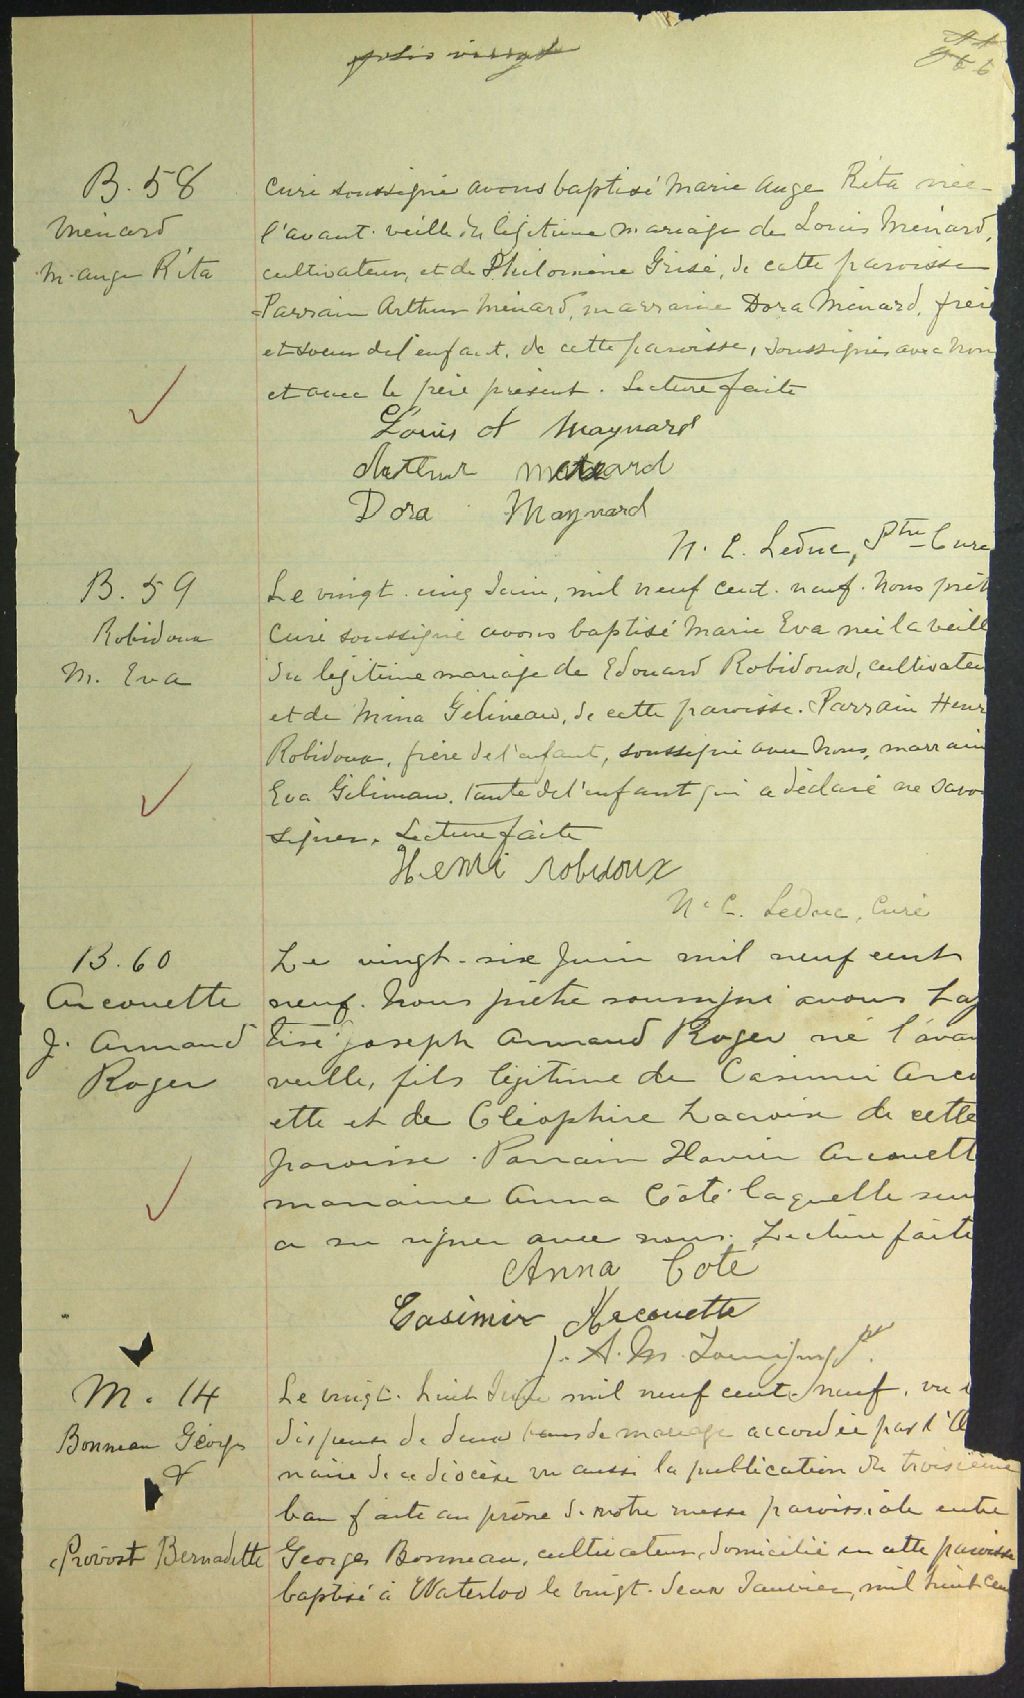 folio vingt
B. 58
Ménard
M. Ange Rita
Curé soussigné avons baptisé Marie Ange Rita née
l'avant-veille du légitime mariage de Louis Ménard,
cultivateur, et de Philomène Grisé, de cette paroisse
Parrain Arthur Ménard, marraine Dora Ménard, frère
et soeur de l'enfant, de cette paroisse, soussignés avec Nous
et avec le père présent. Lecture faite
Louis Maynard
Arthur
Dora Maynard
N. C. Leduc, Ptre Curé
B. 59
Robidoux
M. Eva
Le vingt-cinq Juin, mil neuf cent-neuf. Nous prêt
Curé soussigné avons baptisé Marie Eva née la veill
du légitime mariage de Edouard Robidoux, cultivateu
et de Mina Gélineau, de cette paroisse. Parrain Henr
Robidoux, frère de l'enfant, soussigné avec Nous, marrain
Eva Gélineau, tante de l'enfant qui a déclaré ne savo
signer. Lecture faite
Henri Robidoux
N. C. Leduc, Curé
B. 60
Arcouette
J. Armand
Roger
Le vingt-six Juin mil neuf cent
neuf. Nous prêtre soussigné avons bap
tisé Joseph Armand Roger né l'avan
veille, fils légitime de Casimir Arco
ette et de Cléophire Lacroix de cette
paroisse. Parrain Xavier Arcouett
marraine Anna Côté laquelle seu
a su signer avec nous. Lecture faite
Anna Coté
Casimir Arcouette
J. A. M. ptr.
M. 14
Bonneau Georges
&
Provost Bernadette
Le vingt-huit Juin mil neuf cent neuf, vu l
dispense de deux bans de mariage accordée par l'O
naire de ce diocèse vu aussi la publication du troisième
ban faite au prône de notre messe paroissiale entre
Georges Bonneau, cultivateur, domicilié en cette paroisse
baptisé à Waterloo le vingt-deux Janvier, mil huit cen